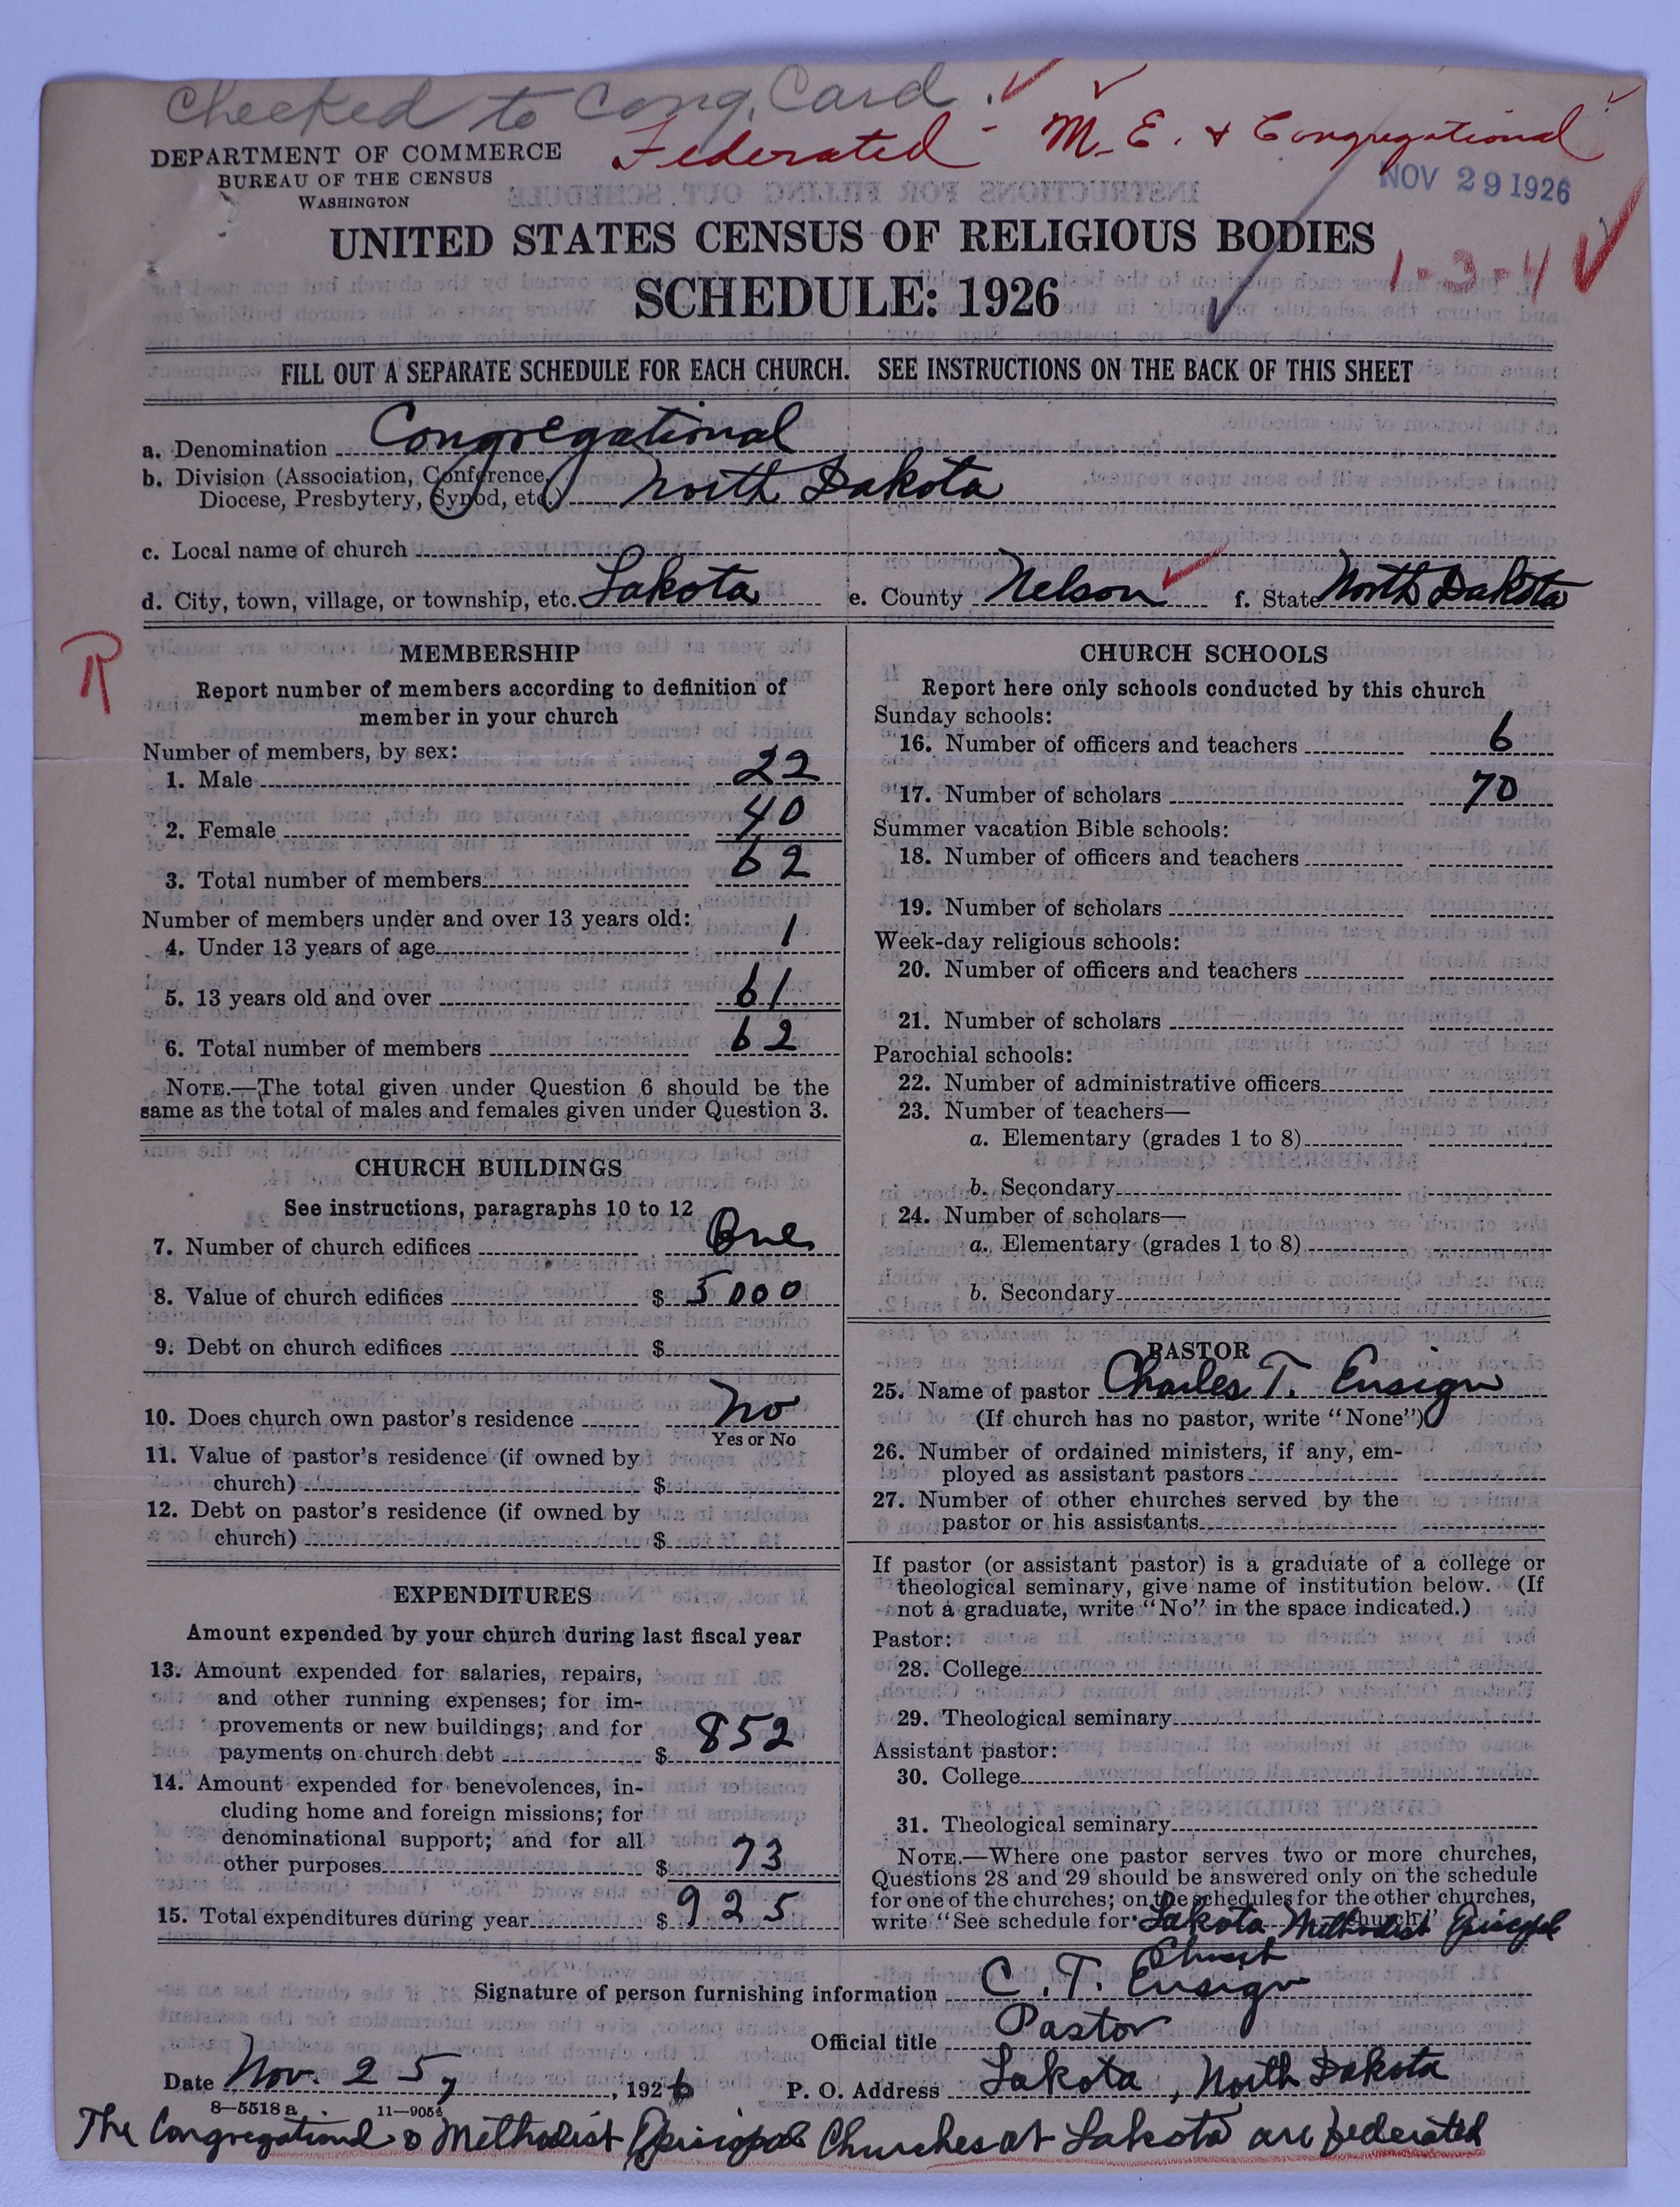 Checked to Cong. Card.
Federated - M.E. & Congregational
DEPARTMENT OF COMMERCE
BUREAU OF THE CENSUS
WASHINGTON
NOV 29 1926
UNITED STATES CENSUS OF RELIGIOUS BODIES
SCHEDULE: 1926
1-3-4
FILL OUT A SEPARATE SCHEDULE FOR EACH CHURCH. SEE INSTRUCTIONS ON THE BACK OF THIS SHEET
a. Denomination Congregational
b. Division (Association, Conference,
Diocese, Presbytery, Synod, etc.) North Dakota
c. Local name of church
d. City, town, village, or township, etc. Lakota e. County Nelson f. State North Dakota
R
MEMBERSHIP
Report number of members according to definition of
member in your church
Number of members, by sex:
1. Male 22
2. Female 40
3. Total number of members 62
Number of members under and over 13 years old:
4. Under 13 years of age 1
5. 13 years old and over 61
6. Total number of members 62
NOTE.—The total given under Question 6 should be the
same as the total of males and females given under Question 3.
CHURCH BUILDINGS
See instructions, paragraphs 10 to 12
7. Number of church edifices One
8. Value of church edifices $ 5000
9. Debt on church edifices $
10. Does church own pastor's residence No
Yes or No
11. Value of pastor's residence (if owned by
church) $
12. Debt on pastor's residence (if owned by
church) $
EXPENDITURES
Amount expended by your church during last fiscal year
13. Amount expended for salaries, repairs,
and other running expenses; for im-
provements or new buildings; and for
payments on church debt $ 852
14. Amount expended for benevolences, in-
cluding home and foreign missions; for
denominational support; and for all
other purposes $ 73
15. Total expenditures during year $ 925
CHURCH SCHOOLS
Report here only schools conducted by this church
Sunday schools:
16. Number of officers and teachers 6
17. Number of scholars 70
Summer vacation Bible schools:
18. Number of officers and teachers
19. Number of scholars
Week-day religious schools:
20. Number of officers and teachers
21. Number of scholars
Parochial schools:
22. Number of administrative officers
23. Number of teachers—
a. Elementary (grades 1 to 8)
b. Secondary
24. Number of scholars—
a. Elementary (grades 1 to 8)
b. Secondary
PASTOR
25. Name of pastor Charles T. Ensign
(If church has no pastor, write "None")
26. Number of ordained ministers, if any, em-
ployed as assistant pastors
27. Number of other churches served by the
pastor or his assistants
If pastor (or assistant pastor) is a graduate of a college or
theological seminary, give name of institution below. (If
not a graduate, write "No" in the space indicated.)
Pastor:
28. College
29. Theological seminary
Assistant pastor:
30. College
31. Theological seminary
NOTE.—Where one pastor serves two or more churches,
Questions 28 and 29 should be answered only on the schedule
for one of the churches; on the schedules for the other churches,
write "See schedule for Lakota Methodist Episcopal church."
Church
Signature of person furnishing information C. T. Ensign
Official title Pastor
Date Nov. 25, 1926 P. O. Address Lakota, North Dakota
8—5518 a 11—9054
The Congregational & Methodist Episcopal Churches at Lakota are federated